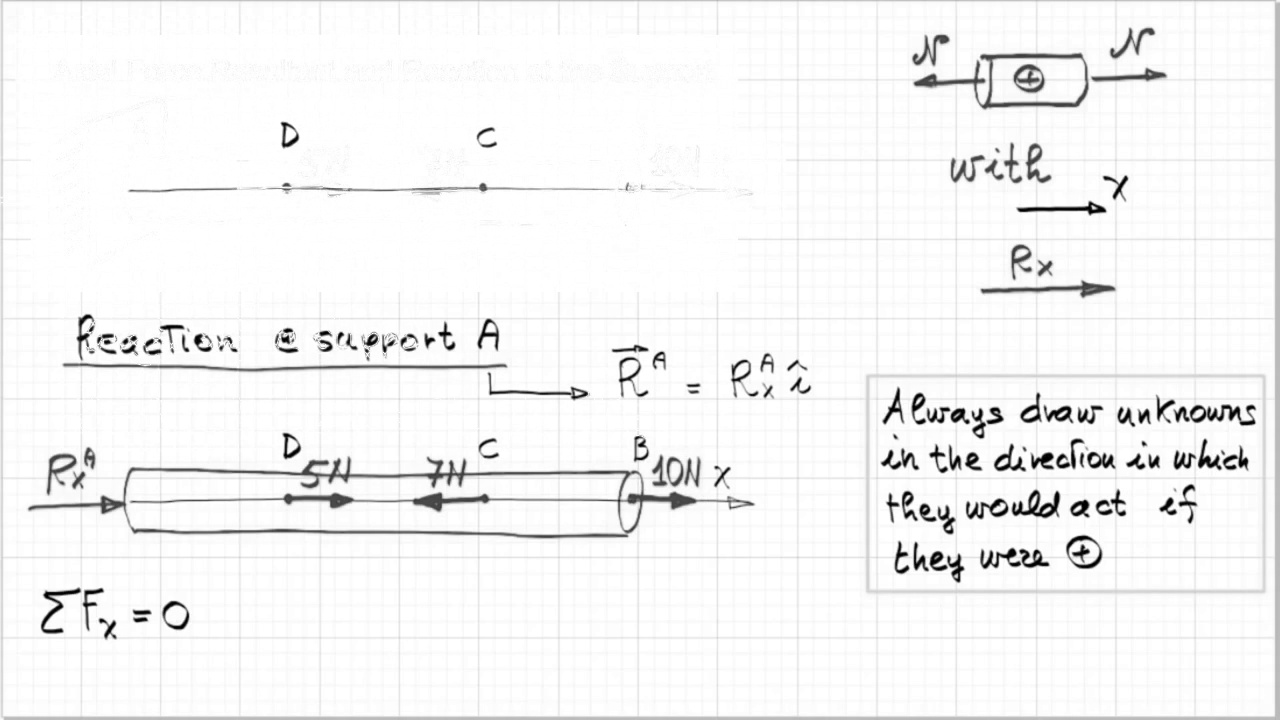 Axial Force Resultant and Reaction at the Support
D C
5N 7N 10N
N N
+
with
x
Rx
Reaction @ support A
R^A = Rx^A î
Rx^A D 5N 7N C B 10N x
ΣFx = 0
Always draw unknowns
in the direction in which
they would act if
they were ⊕